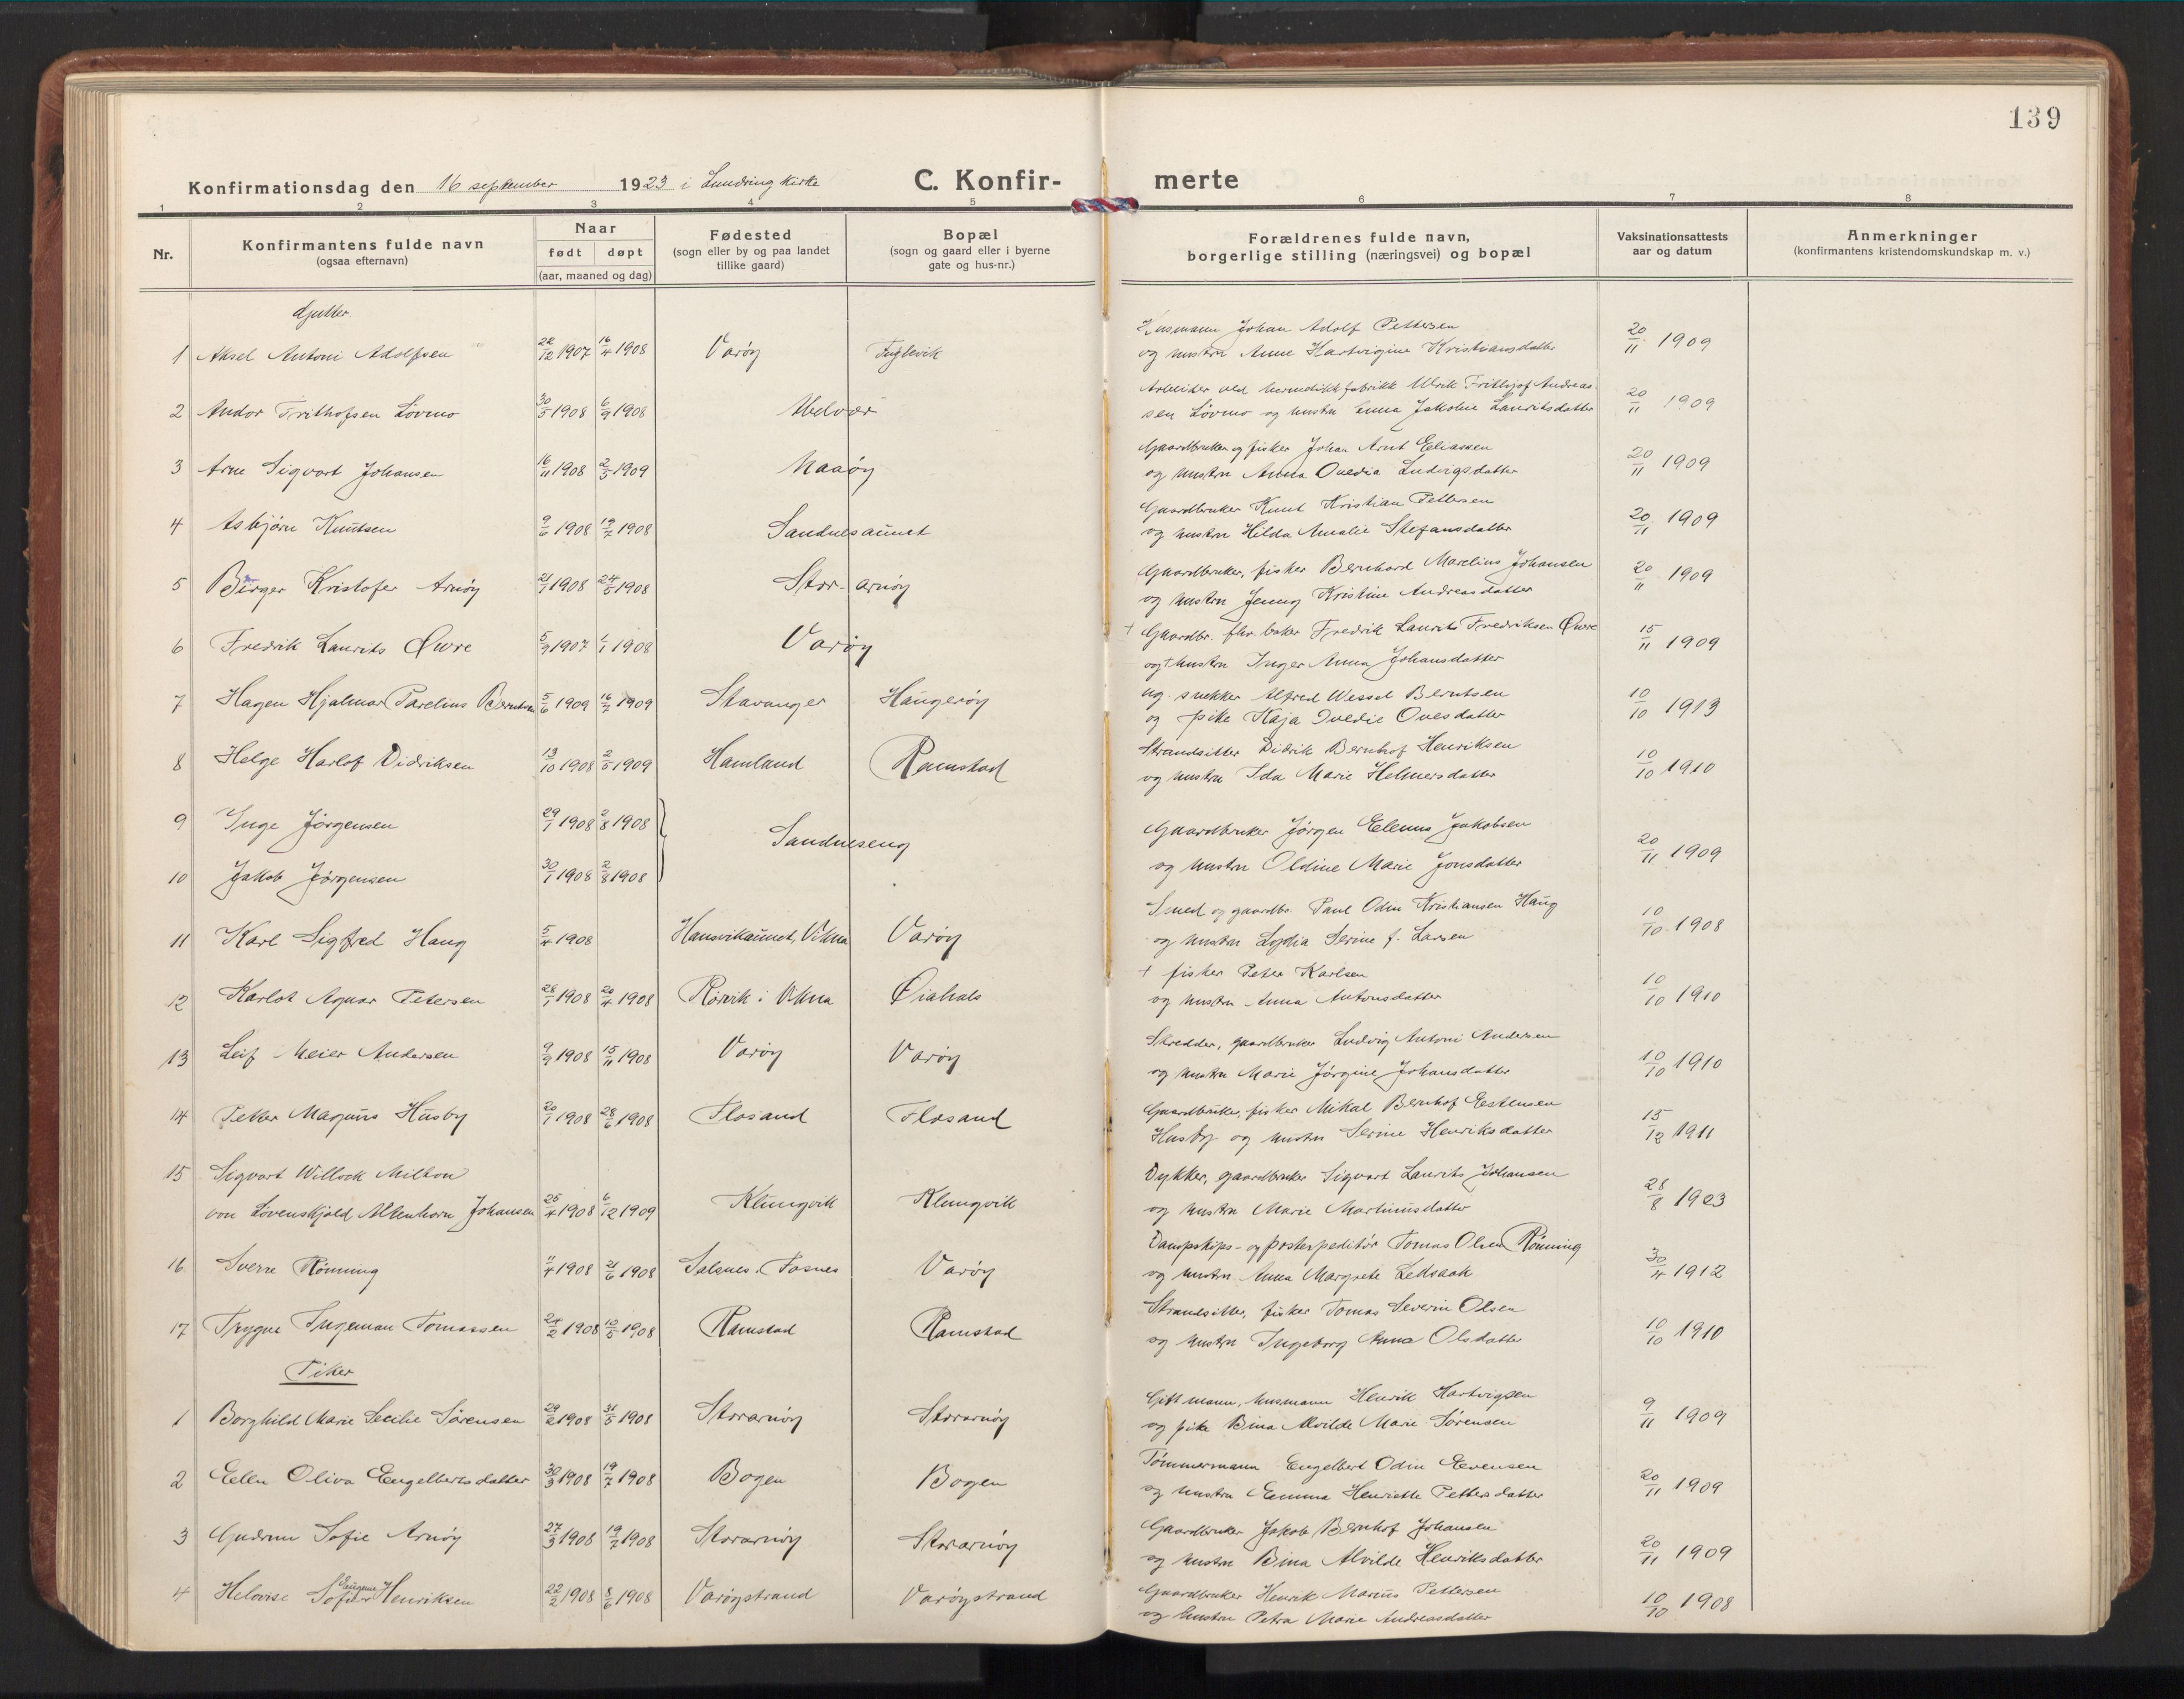 139
Konfirmationsdag den 16 september 1923 i Lundring kirke
C. Konfir- merte
1 2 3 4 5 6 7 8
Nr.
Konfirmantens fulde navn
(ogsaa efternavn)
Naar
født døpt
(aar, maaned og dag)
Fødested
(sogn eller by og paa landet
tillike gaard)
Bopæl
(sogn og gaard eller i byerne
gate og hus-nr.)
Forældrenes fulde navn,
borgerlige stilling (næringsvei) og bopæl
Vaksinationsattests
aar og datum
Anmerkninger
(konfirmantens kristendomskundskap m. v.)
Gutter.
Husmann Johan Adolf Pettersen
1 Aksel Antoni Adolfsen 22/12 1907 16/4 1908 Varøy Fuglevik og hustru Anne Hartvigine Kristiansdatter 20/11 1909
Arbeider ved hermetikkfabrikk Ulrik Frithjof Andreas-
2 Andor Frithofsen Lövmo 30/5 1908 6/9 1908 Abelvær sen Lövmo og hustru Emma Jakobie Lauritsdatter 20/11 1909
Gaardbruker og fisker Johan Arnt Eliassen
3 Arne Sigvart Johansen 16/11 1908 2/5 1909 Naaöy og hustru Anna Ovedia Ludvigsdatter 20/11 1909
Gaardbruker Knut Kristian Pettersen
4 Asbjørn Knutsen 9/6 1908 19/7 1908 Sandnesaunet og hustru Hilda Amalie Stefansdatter 20/11 1909
Gaardbruker, fisker Bernhard Marelius Johansen
5 Birger Kristofer Arnöy 21/1 1908 24/5 1908 Stor-arnöy og hustru Jenny Kristine Andreasdatter 20/11 1909
+ Gaardbr. fhv. baker Fredrik Laurits Fredriksen Øwre
6 Fredrik Laurits Øwre 5/9 1907 1/1 1908 Varöy og + hustru Inger Anna Johansdatter 15/11 1909
ug. snekker Alfred Wessel Berntsen
7 Hagen Hjalmar Parelius Berntsen 5/6 1909 16/7 1909 Stavanger Haugeröy og pike Kaja Ovedie Ovesdatter 10/10 1913
Strandsitter Didrik Bernhof Henriksen
8 Helge Harlof Didriksen 13/10 1908 2/5 1909 Hamland Ramstad og hustru Ida Marie Helmersdatter 10/10 1910
9 Inge Jörgensen 29/1 1908 2/8 1908 Sandneseng Gaardbruker Jörgen Elenus Jakobsen
10 Jakob Jörgensen 30/1 1908 2/8 1908 og hustru Oldine Marie Jonsdatter 20/11 1909
Smed og gaardbr. Paul Odin Kristiansen Haug
11 Karl Sigfred Haug 5/4 1908 Hansvikaunet, Vikna Varöy og hustru Lydia Serine f. Larsen 10/10 1908
+ fisker Peter Karlsen
12 Karlot Agnar Petersen 28/1 1908 20/4 1908 Rörvik i Vikna Öiahals og hustru Anna Antonsdatter 10/10 1910
Skredder, gaardbruker Ludvig Antoni Andersen
13 Leif Meier Andersen 9/9 1908 15/11 1908 Varöy Varöy og hustru Marie Jörgine Johansdatter 10/10 1910
Gaardbruker, fisker Mikal Bernhof Estensen
14 Petter Magnus Husby 20/1 1908 28/6 1908 Flosand Flosand Husby og hustru Serine Henriksdatter 15/12 1911
15 Sigvart Willock Milton Dykker, gaardbruker Sigvart Laurits Johansen
von Lövenskjold Altenhorn Johansen 25/4 1908 6/12 1909 Klungvik Klungvik og hustru Marie Martinusdatter 28/8 1923
Dampskips- og postexpeditör Tomas Olsen Rönning
16 Sverre Rönning 11/4 1908 21/6 1908 Salsnes. Fosnes Varöy og hustru Anna Margrete Ledsaak 30/4 1912
Strandsitter, fisker Tomas Severin Olsen
17 Trygve Ingeman Tomassen 24/2 1908 10/5 1908 Ramstad Ramstad og hustru Ingeborg Anna Olsdatter 10/10 1910
Piker
Gift mann, husmann Henrik Hartvigsen
1 Borghild Marie Secilie Sörensen 29/2 1908 31/5 1908 Storarnöy Storarnöy og pike Bina Alvilde Marie Sörensen 9/11 1909
Tömmermann Engelbert Odin Evensen
2 Ellen Oliva Engelbertsdatter 30/3 1908 19/7 1908 Bogen Bogen og hustru Emma Henriette Pettersdatter 20/11 1909
Gaardbruker Jakob Bernhof Johansen
3 Gudrun Sofie Arnöy 27/3 1908 19/7 1908 Storarnöy Storarnöy og hustru Bina Alvilde Henriksdatter 20/11 1909
Gaardbruker Henrik Marius Pettersen
4 Helovise Sofie Eugenie Henriksen 22/2 1908 8/6 1908 Varöystrand Varöystrand og hustru Petra Marie Andreasdatter 10/10 1908